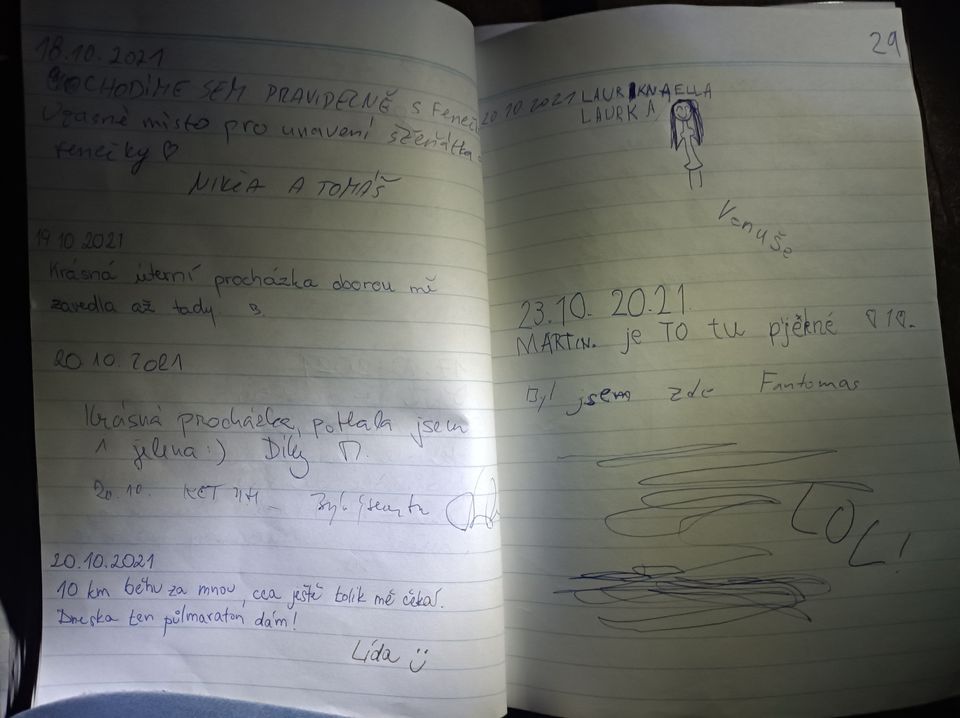 18.10.2021
CHODÍME SEM PRAVIDELNĚ s Feneč
Úžasné místo pro unavení štěňátka
fenečky ♡
A TOMÁŠ
19.10.2021
Krásná úterní procházka oborou mě
zavedla až tady
20.10.2021
Krásná procházka, potkala jsem
1 jelena:) Díky
20.10.
Byl jsem tu
20.10.2021
10 km běhu za mnou, cca ještě tolik mě čeká.
Dneska ten půlmaraton dám!
Lída
29
20.10.2021
LAURKA
Venuše
23.10.20.21.
MARTIN. je TO tu pjěkné
Byl jsem zde Fantomas
LOL!